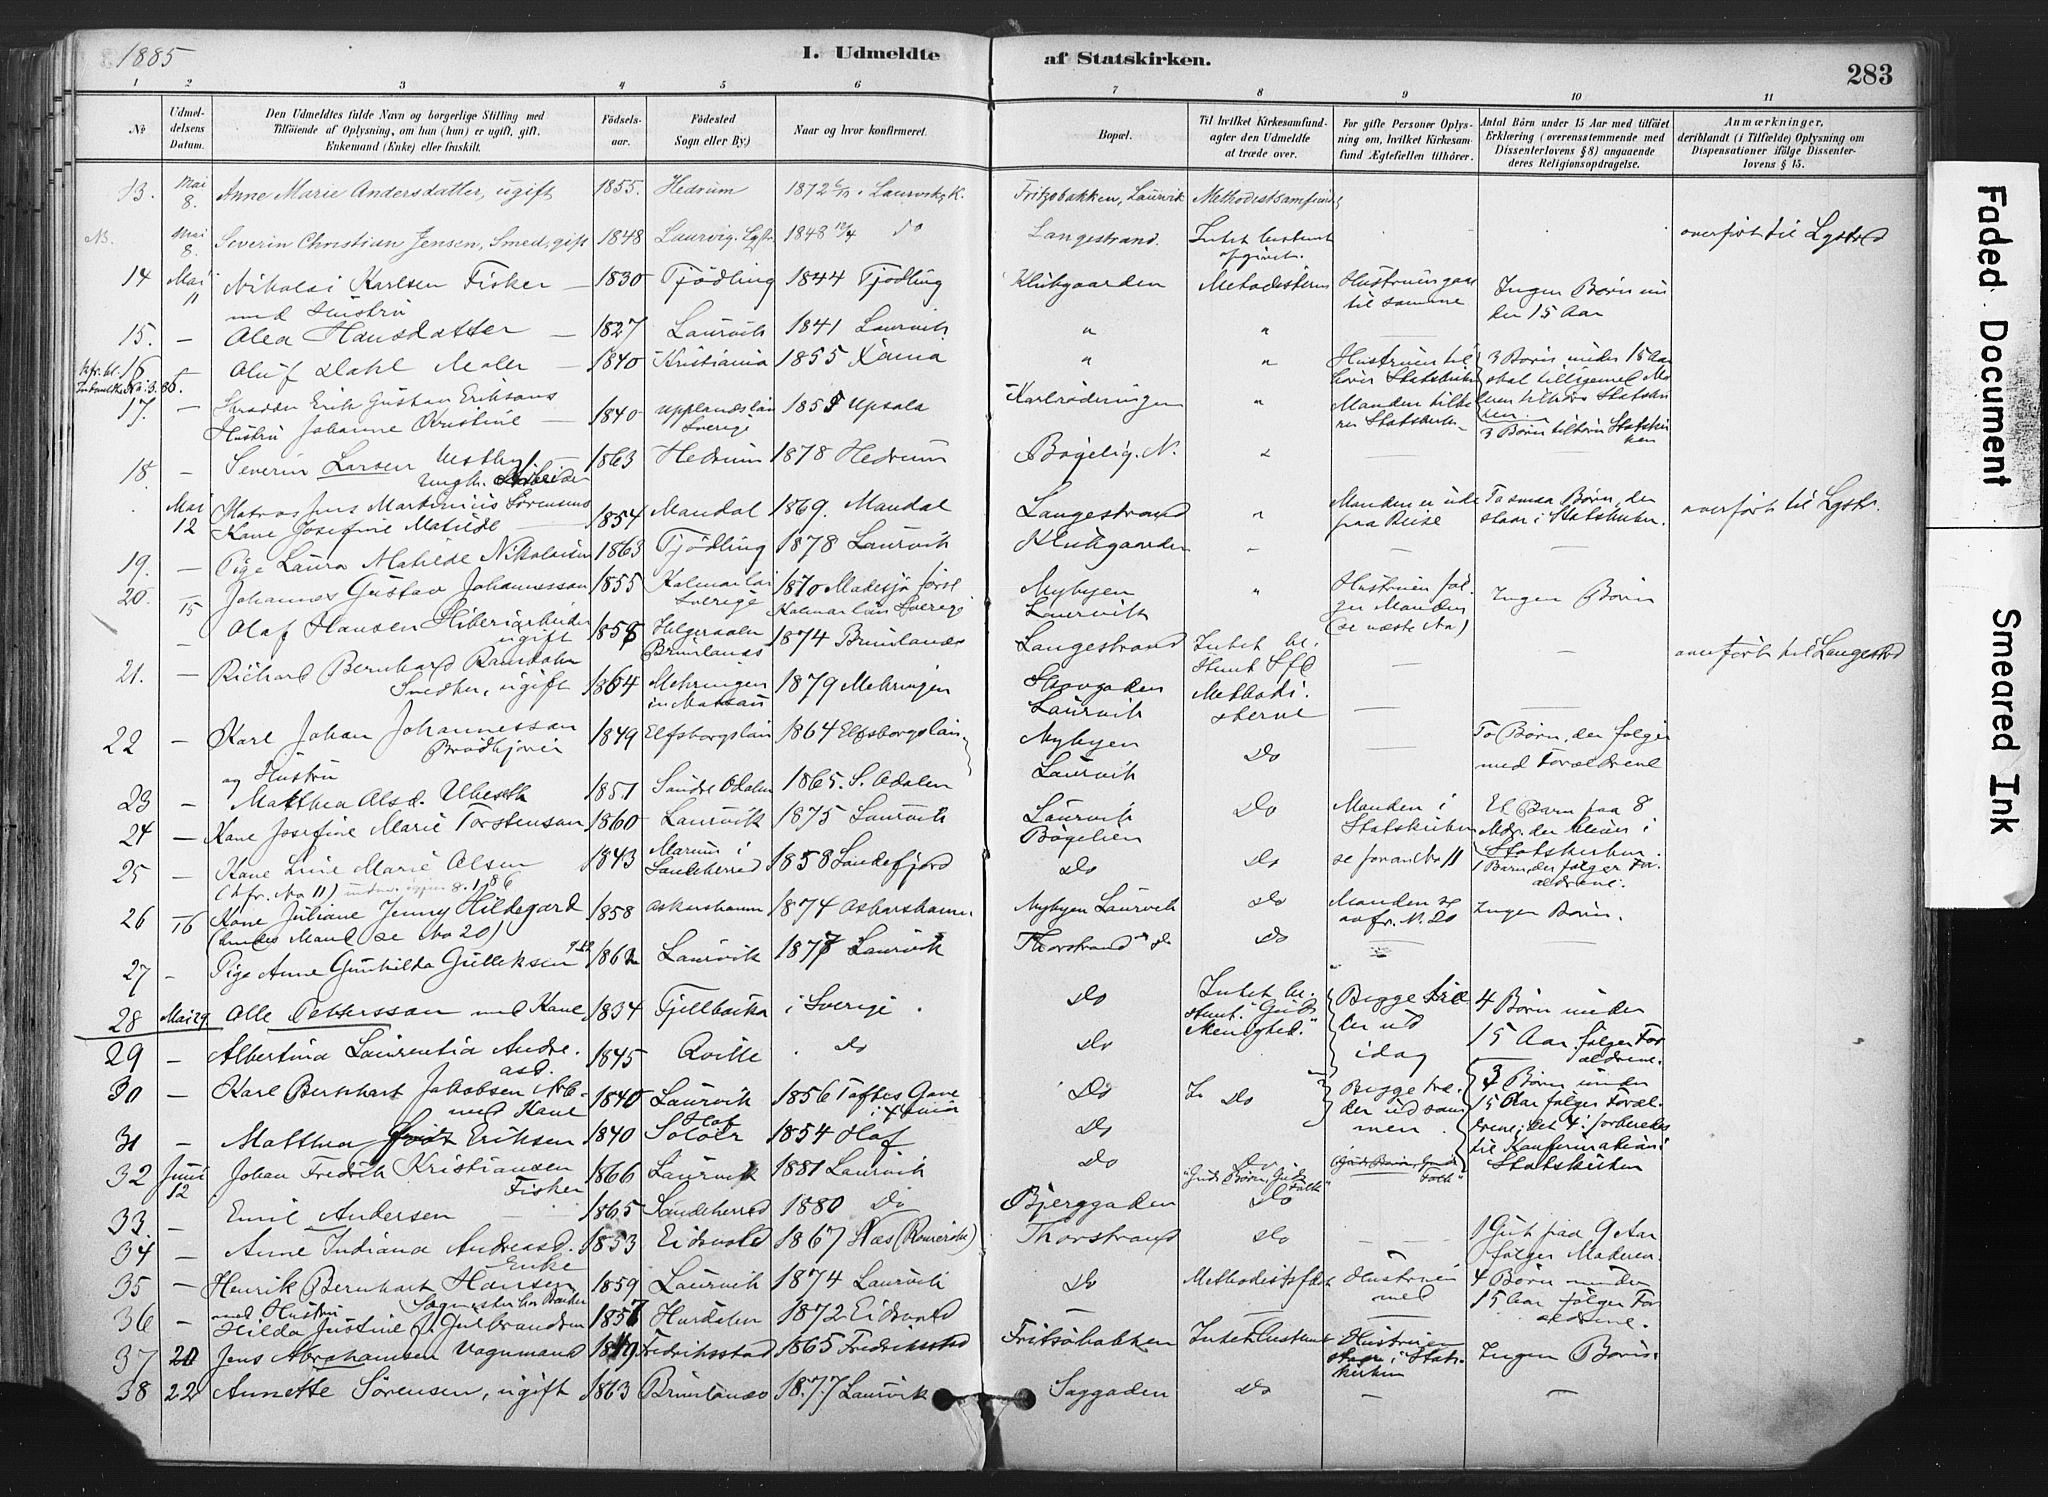 1885
I. Udmeldte af Statskirken.
283
1 2 3 4 5 6 7 8 9 10 11
No
Udmeldelsens Datum.
Den Udmeldtes fulde Navn og borgerlige Stilling med
Tilföiende af Oplysning, om han (hun) er ugift, gift,
Enkemand (Enke) eller fraskilt.
Födselsaar.
Födested
Sogn eller By.)
Naar og hvor konfirmeret.
Bopæl.
Til hvilket Kirkesamfund
agter den Udmeldte
at træde over.
For gifte Personer Oplysning
om, hvilket Kirkesamfund
Ægtefællen tilhörer.
Antal Börn under 15 Aar med tilföiet
Erklæring (overensstemmende med
Dissenterlovens § 8) angaaende
deres Religionsopdragelse.
Anmærkninger,
deriblandt (i Tilfælde) Oplysning om
Dispensationer ifölge Dissenterlovens
§ 15.
13. Mai 8. Anne Marie Andersdatter, ugift 1855. Hedrum 1872 i Laurviks K. Fritzøbakken, Laurvik Methodistsamfundet
Mai 8. Severin Christian Jensen, Smed, gift 1848 Laurvig 1848 do Langestrand. Intet bestemt opgivet. overført til Lgstrd
14 Mai 11 Nikolai Karlsen Fisker — 1830 Tjødling 1844 Tjødling Klubgaarden Metodisterne Hustruen gaar til samme Ingen Børn under 15 Aar
med Hustru
15. — Alea Hansdatter — 1827 Laurvik 1841 Laurvik " "
16 — Oluf Dahl Maler — 1840 Kristiania 1855 Xania " " Hustruen tilhører Statskirken 3 Børn under 15 Aar
17. — Skrædder Erik Gustav Eriksons
Hustru Johanne Kristine — 1840 Upplandslän Sverige 1855 Upsala Karlsøderingen " Manden tilhører Statskirken 3 Børn tilhører Statskirken
18. — Severin Larsen Vestby, Ungk. Arbeider 1863 Hedrum 1878 Hedrum Bøgelig. N. " — —
Mai 12 Matros Jens Martinius Sørensens
Kone Josefine Matilde — 1854 Mandal 1869. Mandal Langestrand " Manden er ude paa Reise To smaa Børn, der staar i Statskirken. overført til Lgstr.
19. — Pige Laura Matilde Nikolaisen 1863 Tjødling 1878 Laurvik Klubgaarden " — —
20. 15 Johannes Gustav Johannesson 1855 Kalmarlän Sverige 1870 Madesjø Kalmarlän Sverige Nybyen Laurvik " Hustruen følger Manden (se næste No) Ingen Børn
— Olaf Hansen Stiberiarbeider ugift 1858 Helgeroaen Brunlanes 1874 Brunlanes Langestrand Intet bestemt — — overført til Langestrd
21. — Richard Bernhard Ramdohr Snedker, ugift 1864 Mehringen in Nassau 1879 Mehringen Skovgaden Laurvik Methodisterne — —
22 — Karl Johan Johannesson Brødkjører 1849 Elfsborgslän 1864 Elfsborgslän Nybyen Laurvik Do — To Børn, der følger med Forældrene
og Hustru
23 — Matthea Olsd. Ulseth 1851 Søndre Odalen 1865. S. Odalen
24 — Kone Josefine Marie Torstenson 1860 Laurvik 1875 Laurvik Laurvik Bøgelien Do Manden i Statskirken Et Barn paa 8 Mdr. der bliver i Statskirken.
25 — Kone Line Marie Olsen 1843 Marum i Sandeherred 1858 Sandefjord Do Do se foran No 11 1 Barn, der følger Forældrene.
(Jfr. No 11) 8.1.86
26 16 Kone Juliane Jenny Hildegard 1858 Oskarshamn 1874 Oskarshamn Nybyen Laurvik Do Manden se ovfr. N. 20 Ingen Børn.
(hendes Mand se No 20)
27 — Pige Anne Gunhilda Gulleksen 1862 Laurvik 1877 Laurvik Thorstrand Do Do — —
28 Mai 29 Olle Pettersson med Kone 1834 Fjellbacka i Sverige. Do Intet bestemt. "Guds Menighed." Begge træder ud idag 4 Børn under 15 Aar følger Forældrene.
29 — Albertina Laurentia Andreasd. 1845 Qville Do Do
30 — Karl Bernhart Jakobsen Arb. med Kone 1840 Laurvik 1856 Toftes Gave i Xania Do Do Begge træder ud sammen. 3 Børn under 15 Aar følger Forældrene; det 4. forberedes til Konfirmation i Statskirken
31 — Matthea Eriksen 1840 Hof Solør 1854 Hof Do
32 Juni 12 Johan Fredrik Kristiansen Fisker 1866 Laurvik 1881 Laurvik Do Do "Guds Børn, Guds Folk"
33. — Emil Andersen — — 1865 Sandeherred 1880 Do Bjerggaden Do
34 — Anne Indiana Andreasd. Enke 1853 Eidsvold 1867 Næs (Romerike) Thorstrand Do — 1 Gut paa 9 Aar følger Moderen.
35 — Henrik Bernhart Hansen 1859 Laurvik 1874 Laurvik Do Methodistsfdt Hustruen med 4 Børn under 15 Aar følger Forældrene.
med Hustru
36 — Hilda Justine Gulbrandsen 1857 Hurdalen 1872 Eidsvold —
37 20 Jens Abrahamsen Vognmand 1849 Fredriksstad 1865 Fredriksstad Fritsøbakken Intet bestemt Hustruen staar i Statskirken Ingen Børn.
38 22 Annette Sørensen, ugift 1863 Brunlanes 1877 Laurvik Saggaden Do — —
Faded Document
Smeared Ink